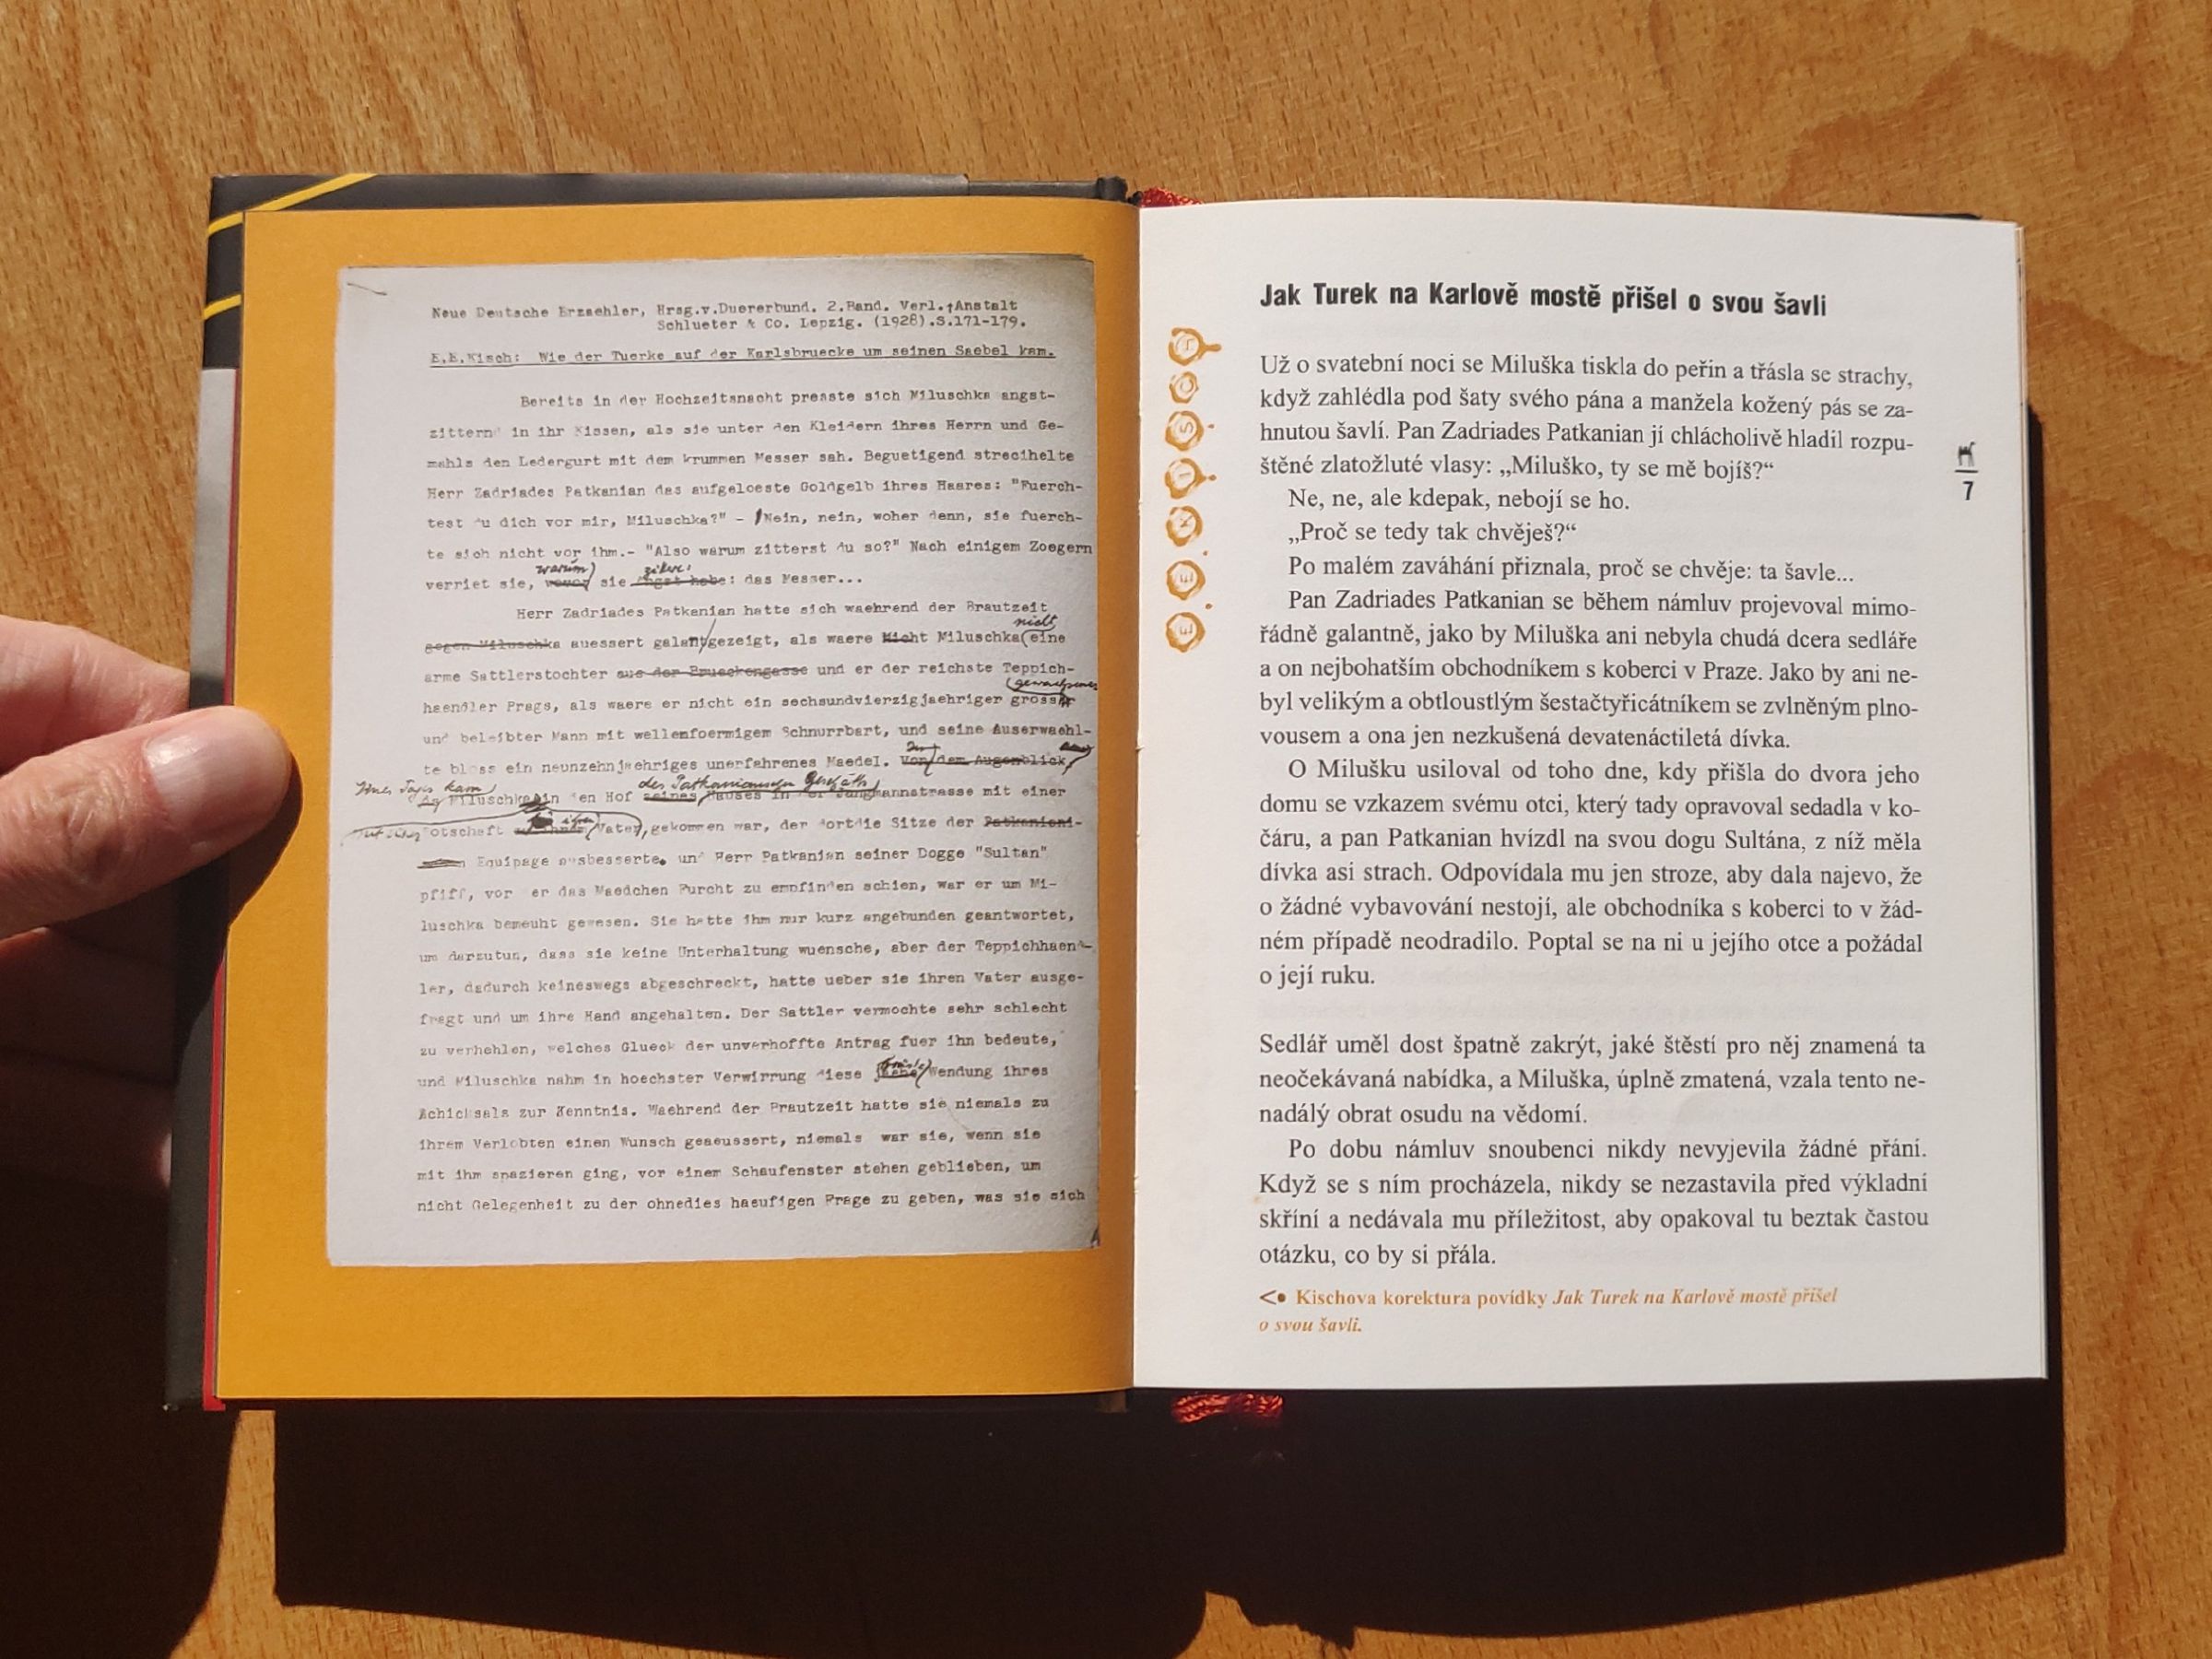 Neue Deutsche Erzaehler, Hrsg.v.Duererbund. 2.Band. Verl.-Anstalt
Schlueter & Co. Lepzig. (1928).S.171-179.
E.E.Kisch: Wie der Tuerke auf der Karlsbruecke um seinen Saebel kam.
Bereits in der Hochzeitsnacht presste sich Miluschka angst-
zitternd in ihr Kissen, als sie unter den Kleidern ihres Herrn und Ge-
mahls den Ledergurt mit dem krummen Messer sah. Beguetigend strecihelte
Herr Zadriades Patkanian das aufgeloeste Goldgelb ihres Haares: "Fuerch-
test du dich vor mir, Miluschka?" - Nein, nein, woher denn, sie fuerch-
te sich nicht vor ihm.- "Also warum zitterst du so?" Nach einigem Zoegern
warum zittere:
verriet sie, wovor sie Angst habe: das Messer...
Herr Zadriades Patkanian hatte sich waehrend der Brautzeit
nicht
gegen Miluschka auessert galant gezeigt, als waere Nicht Miluschka eine
arme Sattlerstochter aus der Brueckengasse und er der reichste Teppich-
gewachsener
haendler Prags, als waere er nicht ein sechsundvierzigjaehriger grosser
und beleibter Mann mit wellenfoermigem Schnurrbart, und seine Auserwaehl-
te bloss ein neunzehnjaehriges unerfahrenes Maedel. Von dem Augenblick,
Eines Tages kam des Patkanianschen Geschäfts
Miluschka in den Hof seines Hauses in der Jungmannstrasse mit einer
Botschaft ihren Vater, gekommen war, der dortdie Sitze der Patkaniani-
Equipage ausbesserte. und Herr Patkanian seiner Dogge "Sultan"
pfiff, vor der das Maedchen Furcht zu empfinden schien, war er um Mi-
luschka bemeuht gewesen. Sie hatte ihm nur kurz angebunden geantwortet,
um darzutun, dass sie keine Unterhaltung wuensche, aber der Teppichhaend-
ler, dadurch keineswegs abgeschreckt, hatte ueber sie ihren Vater ausge-
fragt und um ihre Hand angehalten. Der Sattler vermochte sehr schlecht
zu verhehlen, welches Glueck der unverhoffte Antrag fuer ihn bedeute,
und Miluschka nahm in hoechster Verwirrung diese Wendung ihres
Schicksals zur Kenntnis. Waehrend der Brautzeit hatte sie niemals zu
ihrem Verlobten einen Wunsch geaeussert, niemals war sie, wenn sie
mit ihm spazieren ging, vor einem Schaufenster stehen geblieben, um
nicht Gelegenheit zu der ohnedies haeufigen Frage zu geben, was sie sich
Jak Turek na Karlově mostě přišel o svou šavli
Už o svatební noci se Miluška tiskla do peřin a třásla se strachy,
když zahlédla pod šaty svého pána a manžela kožený pás se za-
hnutou šavlí. Pan Zadriades Patkanian jí chlácholivě hladil rozpu-
štěné zlatožluté vlasy: „Miluško, ty se mě bojíš?“
Ne, ne, ale kdepak, nebojí se ho.
„Proč se tedy tak chvěješ?“
Po malém zaváhání přiznala, proč se chvěje: ta šavle...
Pan Zadriades Patkanian se během námluv projevoval mimo-
řádně galantně, jako by Miluška ani nebyla chudá dcera sedláře
a on nejbohatším obchodníkem s koberci v Praze. Jako by ani ne-
byl velikým a obtloustlým šestačtyřicátníkem se zvlněným plno-
vousem a ona jen nezkušená devatenáctiletá dívka.
O Milušku usiloval od toho dne, kdy přišla do dvora jeho
domu se vzkazem svému otci, který tady opravoval sedadla v ko-
čáru, a pan Patkanian hvízdl na svou dogu Sultána, z níž měla
dívka asi strach. Odpovídala mu jen stroze, aby dala najevo, že
o žádné vybavování nestojí, ale obchodníka s koberci to v žád-
ném případě neodradilo. Poptal se na ni u jejího otce a požádal
o její ruku.
Sedlář uměl dost špatně zakrýt, jaké štěstí pro něj znamená ta
neočekávaná nabídka, a Miluška, úplně zmatená, vzala tento ne-
nadálý obrat osudu na vědomí.
Po dobu námluv snoubenci nikdy nevyjevila žádné přání.
Když se s ním procházela, nikdy se nezastavila před výkladní
skříní a nedávala mu příležitost, aby opakoval tu beztak častou
otázku, co by si přála.
Kischova korektura povídky Jak Turek na Karlově mostě přišel
o svou šavli.
E.E.KISCH
7